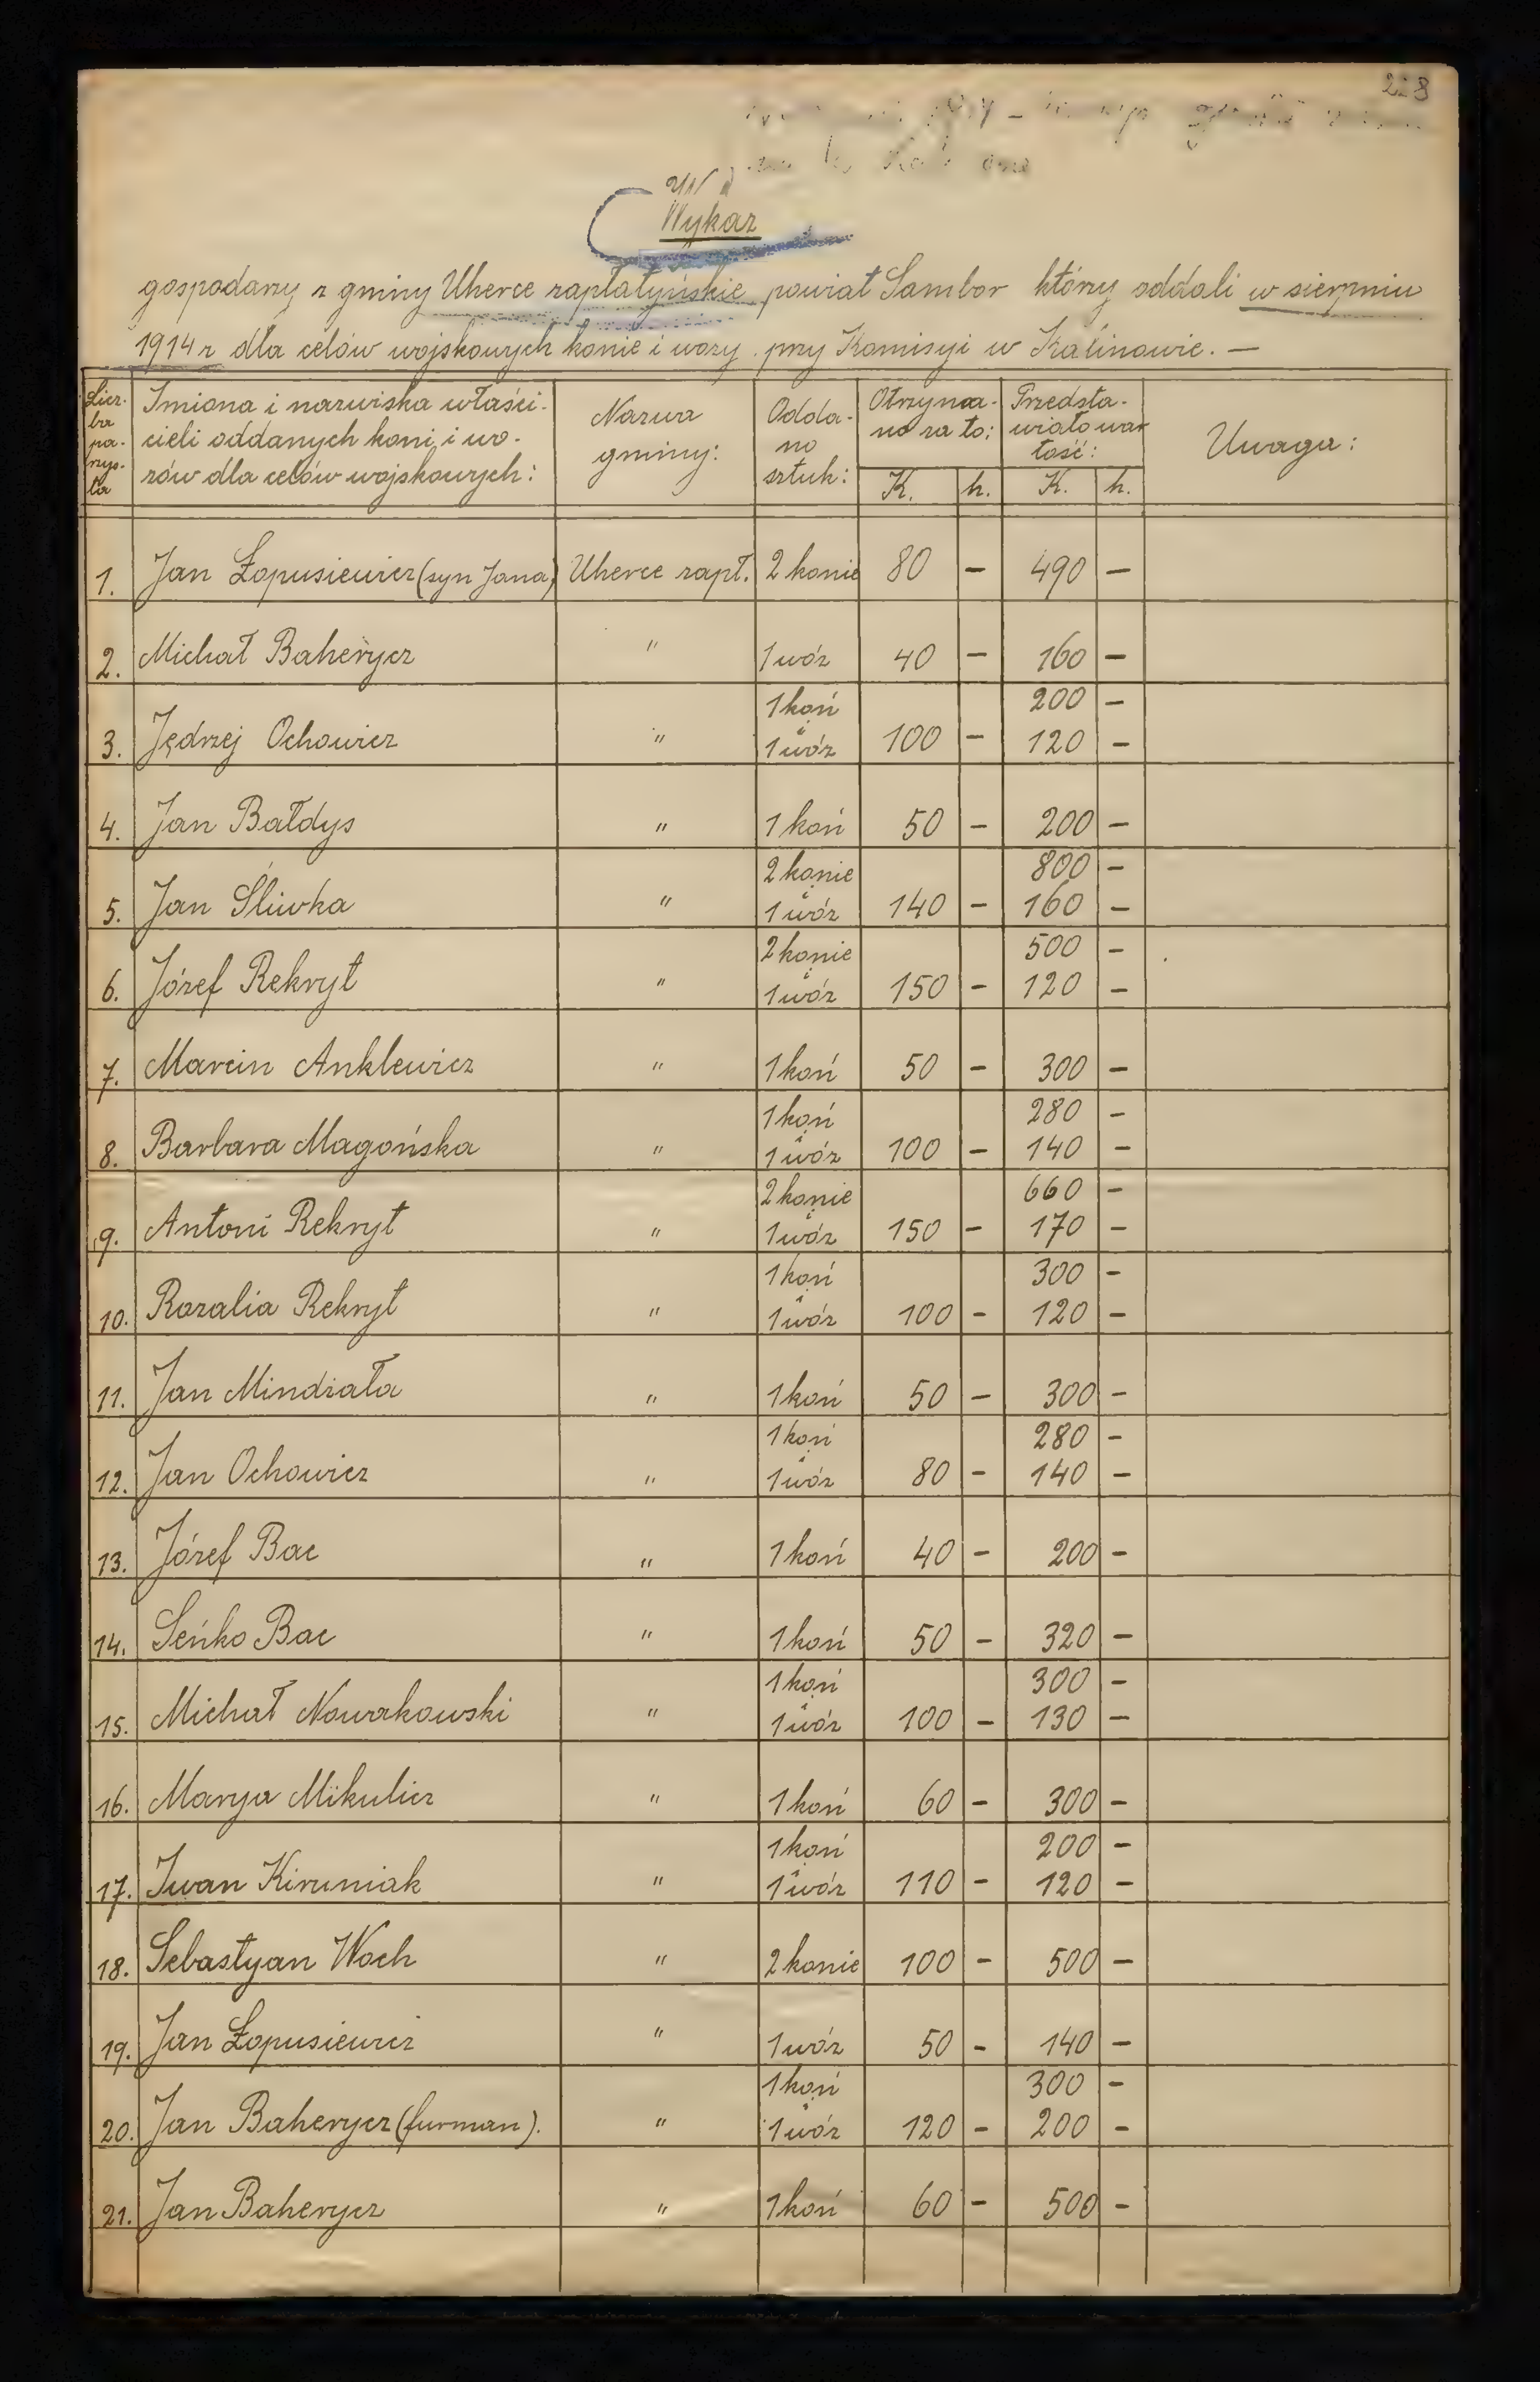 Wykaz
gospodarzy z gminy Uherce zapłatyńskie powiat Sambor którzy oddali w sierpniu
1914 r dla celów wojskowych konie i wozy przy Komisyi w Kalinowie. —
Licz-
ba
po-
rząd-
ku
Imiona i nazwiska właści-
cieli oddanych koni, i wo-
zów dla celów wojskowych:
Nazwa
gminy:
Odda-
no
sztuk:
Otrzyma-
no za to:
K. h.
Przedsta-
wiało war
tość:
K. h.
Uwaga:
1. Jan Łopusiewicz (syn Jana) Uherce zapł. 2 konie 80 — 490 —
2. Michał Baherycz " 1 wóz 40 — 160 —
1 koń 200 —
3. Jędrzej Ochowicz " i 1 wóz 100 — 120 —
4. Jan Bałdys " 1 koń 50 — 200 —
2 konie 800 —
5. Jan Śliwka " i 1 wóz 140 — 160 —
2 konie 500 —
6. Józef Rekryt " i 1 wóz 150 — 120 —
7. Marcin Anklewicz " 1 koń 50 — 300 —
1 koń 280 —
8. Barbara Magońska " i 1 wóz 100 — 140 —
2 konie 660 —
9. Antoni Rekryt " i 1 wóz 150 — 170 —
1 koń 300 —
10. Rozalia Rekryt " i 1 wóz 100 — 120 —
11. Jan Mindziała " 1 koń 50 — 300 —
1 koń 280 —
12. Jan Ochowicz " i 1 wóz 80 — 140 —
13. Józef Bac " 1 koń 40 — 200 —
14. Seńko Bac " 1 koń 50 — 320 —
1 koń 300 —
15. Michał Nowakowski " i 1 wóz 100 — 130 —
16. Marya Mikulicz " 1 koń 60 — 300 —
1 koń 200 —
17. Iwan Kiruniak " i 1 wóz 110 — 120 —
18. Sebastyan Woch " 2 konie 100 — 500 —
19. Jan Łopusiewicz " 1 wóz 50 — 140 —
1 koń 300 —
20. Jan Baherycz (furman). " i 1 wóz 120 — 200 —
21. Jan Baherycz " 1 koń 60 — 500 —